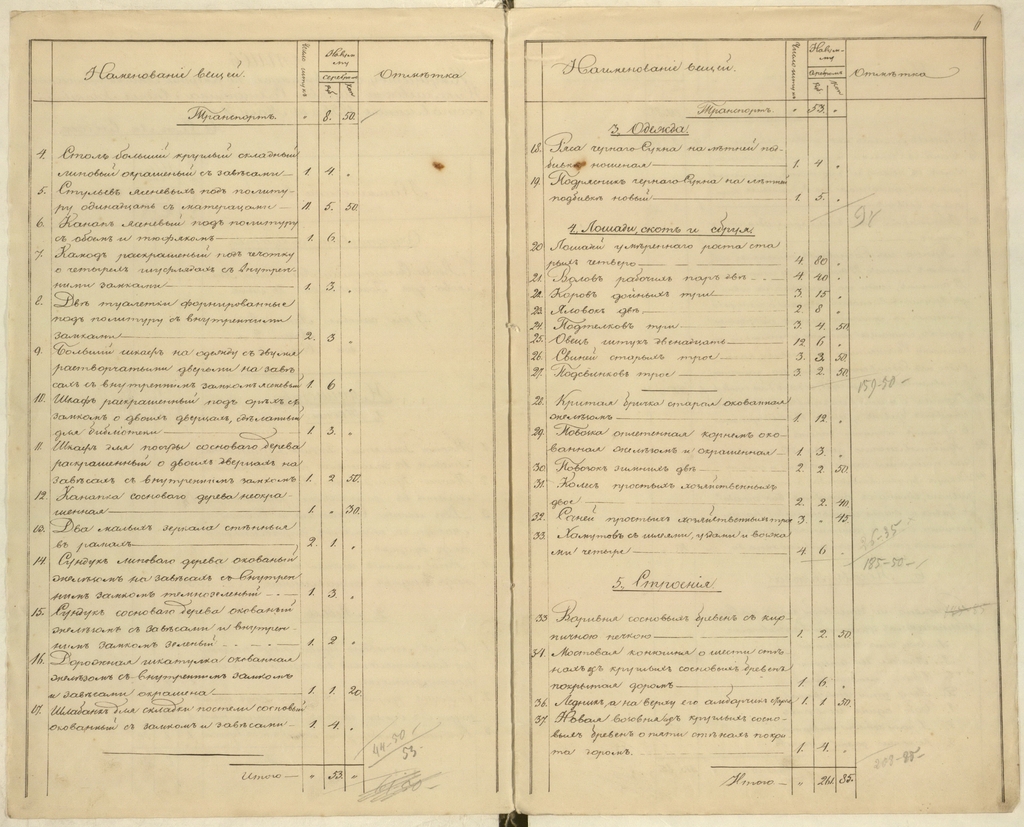 Наименованіе вещей.
Число штукъ
На сумму
серебромъ
Руб
Коп
Отмѣтка
Транспортъ. " 8. 50.
4. Столъ большій круглый складный
липовый окрашеный съ завѣсами 1. 4. "
5. Стульевъ ясеневыхъ подъ политу-
ру одинадцать съ матерацами 11. 5. 50.
6. Канапа ясеневый подъ политуру
съ обоим и тюфякомъ 1. 6. "
7. Камодъ раскрашеный подъ чечотку
о четырехъ шуфлядахъ съ внутрен-
ними замками 1. 3. "
8. Двѣ туалетки форнированные
подъ политуру съ внутренними
замками 2. 3 "
9. Большій шкафъ на одежду съ двумя
растворчатыми дверьми на завѣ-
сахъ съ внутреннимъ замкомъ ясеневый 1. 6 "
10. Шкафъ раскрашенный подъ орѣхъ съ
замкомъ о двоихъ дверцахъ, дѣланный
для библіотеки 1. 3. "
11. Шкафъ для посуды сосноваго дерева
раскрашенный о двоихъ дверцахъ на
завѣсахъ съ внутреннимъ замкомъ 1. 2 50.
12. Канапка сосноваго дерева неокра-
шенная 1. " 30.
13. Два малыхъ зеркала стѣнныя
въ рамахъ 2. 1. "
14. Сундукъ липоваго дерева окованый
желѣзомъ на завѣсахъ съ внутрен-
нимъ замкомъ темнозеленый 1. 3. "
15. Сундукъ сосноваго дерева окованый
желѣзомъ съ завѣсами и внутрен-
нимъ замкомъ зеленый 1. 2 "
16. Дорожная шкатулка окованная
желѣзомъ съ внутреннимъ замкомъ
и завѣсами окрашена 1. 1. 20.
17. Шлабанъ для складки постели сосновый
окованный съ замкомъ и завѣсами 1. 4. "
44-50
53.
Итого " 53. "
6
Наименованіе вещей.
Число штукъ
На сум-
му
серебромъ
Руб
Коп
Отмѣтка
Транспортъ. " 53. "
3. Одежда.
18. Ряса чернаго сукна на лѣтней под-
бивкѣ ношеная 1. 4 "
19. Подрясникъ чернаго сукна на лѣтней
подбивкѣ новый 1. 5. "
9 r
4. Лошади, скотъ и сбруя.
20. Лошадей умѣреннаго роста ста-
рыхъ четверо 4 80 "
21. Воловъ рабочихъ паръ двѣ 4 40 "
22. Коровъ дойныхъ три 3. 15 "
23. Яловокъ двѣ 2. 8 "
24. Подтелковъ три 3. 4. 50.
25. Овецъ штукъ двенадцать 12 6 "
26. Свиней старыхъ трое 3. 3. 50.
27. Подсвинковъ трое 3 2. 50.
159-50
28. Критая бричка старая окованная
желѣзомъ 1. 12. "
29. Повозка оплетенная корнемъ око-
ванная желѣзомъ и окрашенная 1. 3. "
30. Повозокъ зимнихъ двѣ 2. 2. 50.
31. Колесъ простыхъ хозяйственныхъ
двое 2. 2. 40.
32. Саней простыхъ хозяйственныхъ трое 3. " 45.
33. Хомутовъ съ шлеями, уздами и возжа-
ми четыре 4 6 "
26-35
185-50
5. Строенія
33 Варивня сосновыхъ бревенъ съ кир-
пичною печкою 1. 2. 50.
34. Мостовая конюшня о шести стѣ-
нахъ изъ круглыхъ сосновыхъ бревенъ
покрытая доромъ 1 6. "
36. Ледникъ, а на верху его амбарчикъ 1. 1 50.
37. Новая возовня изъ круглыхъ сосно-
выхъ бревенъ о пяти стѣнахъ покры-
та доромъ. 1. 4. "
208-85
Итого " 261. 85.